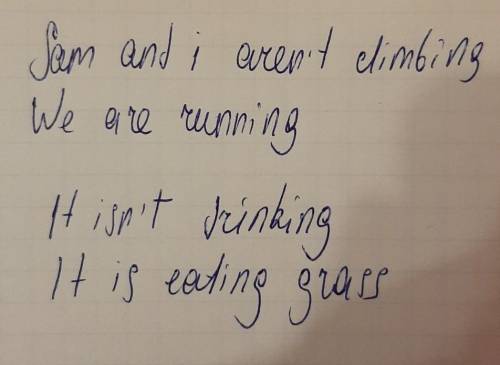 Sam and i aren't climbing
We are running
It isn't drinking
It is eating grass